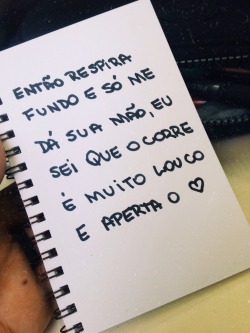 ENTÃO RESPIRA
FUNDO E SÓ ME
DÁ SUA MÃO, EU
SEI QUE O CORRE
É MUITO LOUCO
E APERTA O ♡